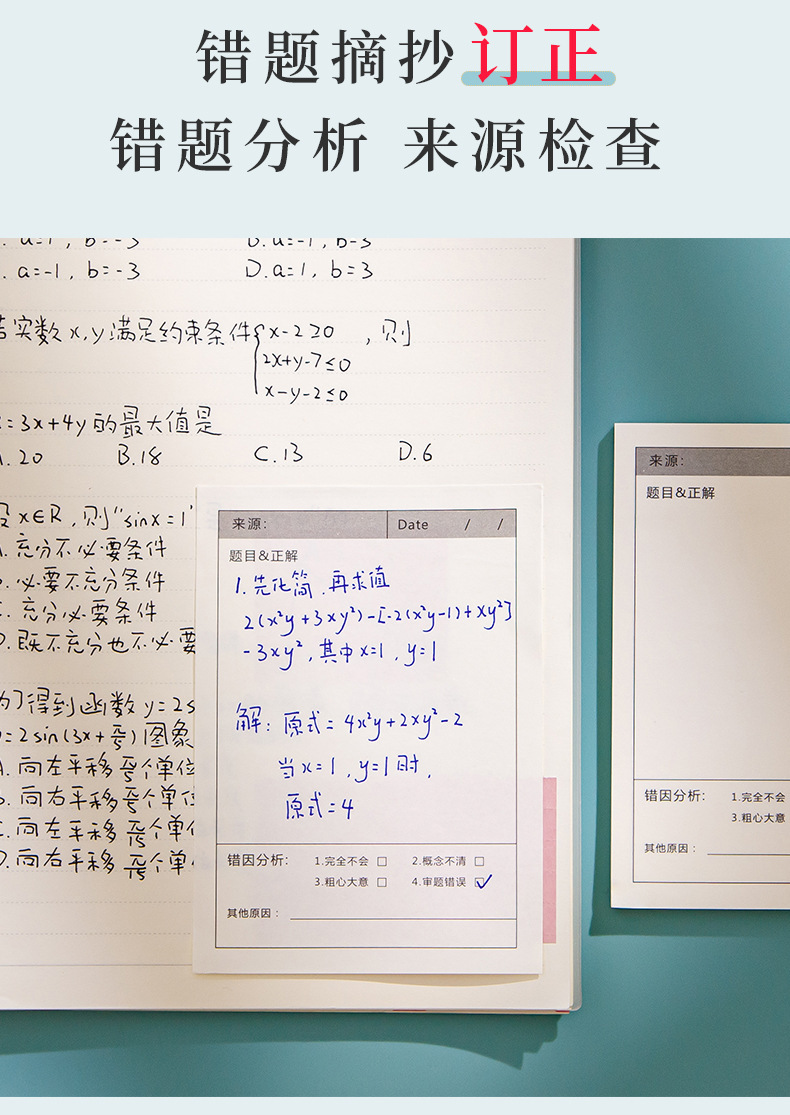 错题摘抄订正
错题分析 来源检查
. a=1, b=-3
B. a=-1, b=3
. a=-1, b=-3
D. a=1, b=3
实数x,y满足约束条件{x-2≥0
2x+y-7≤0
x-y-2≤0
,则
=3x+4y的最大值是
.20 B.18 C.13 D.6
x∈R,则"sinx=1"
.充分不必要条件
.必要不充分条件
.充分必要条件
.既不充分也不必要
为了得到函数y=2s
=2sin(3x+π/5)图象
A.向左平移π/5个单位
.向右平移π/5个单位
.向左平移π/15个单位
.向右平移π/15个单
来源: Date / /
题目&正解
1.先化简,再求值
2(x²y+3xy²)-[-2(x²y-1)+xy²]
-3xy²,其中x=1,y=1
解:原式=4x²y+2xy²-2
当x=1,y=1时,
原式=4
错因分析: 1.完全不会 □ 2.概念不清 □
3.粗心大意 □ 4.审题错误 ☑
其他原因:
来源:
题目&正解
错因分析: 1.完全不会
3.粗心大意
其他原因: